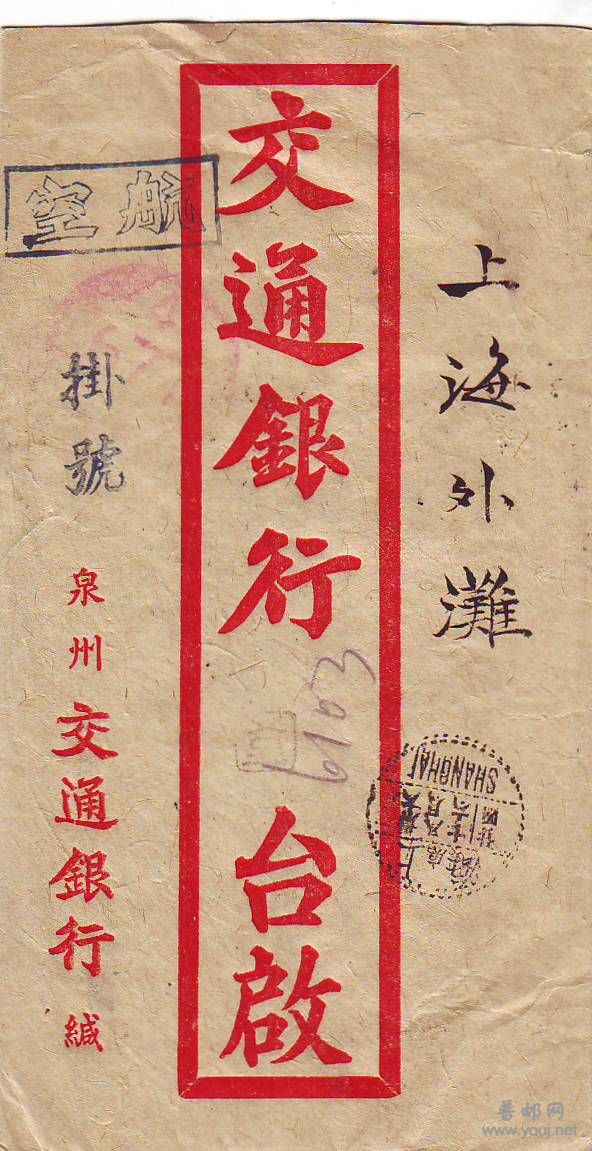 上海外灘
交通銀行 台啟
航空
掛號
泉州 交通銀行 緘
6103
SHANGHAI
普邮网
www.youj.net